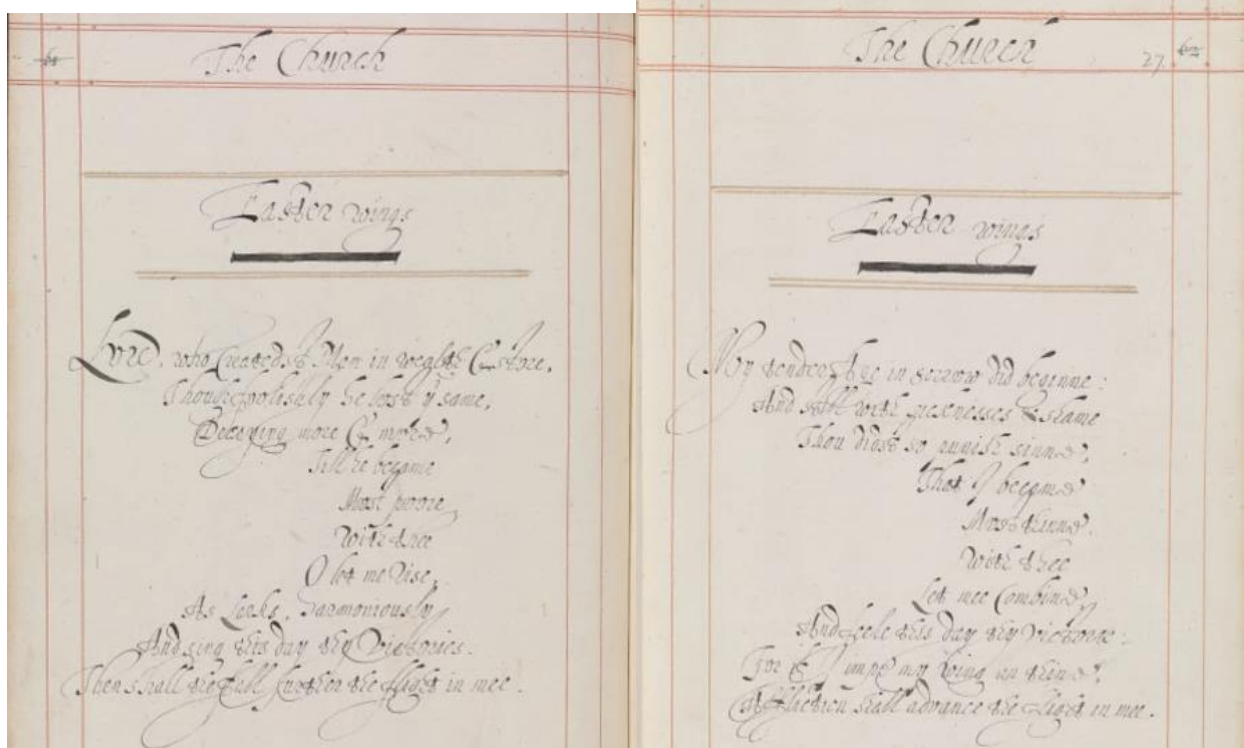 The Church
Easter wings
Lord, who Createdst Man in wealth & store,
Though foolishly he lost y same,
Decaying more & more,
Till he became
Most poore
With thee
O let me rise,
As Larks, harmoniously
And sing this day thy Victories.
Then shall the Fall further the flight in mee.
The Church 27.
Easter wings
My tender Age in sorrow did beginne:
And still with sicknesses & shame
Thou didst so punish sinne,
That I became
Most thinne.
With thee
Let mee Combine
And feele this day thy victorie:
For if I impe my wing on thine,
Affliction shall advance the flight in mee.